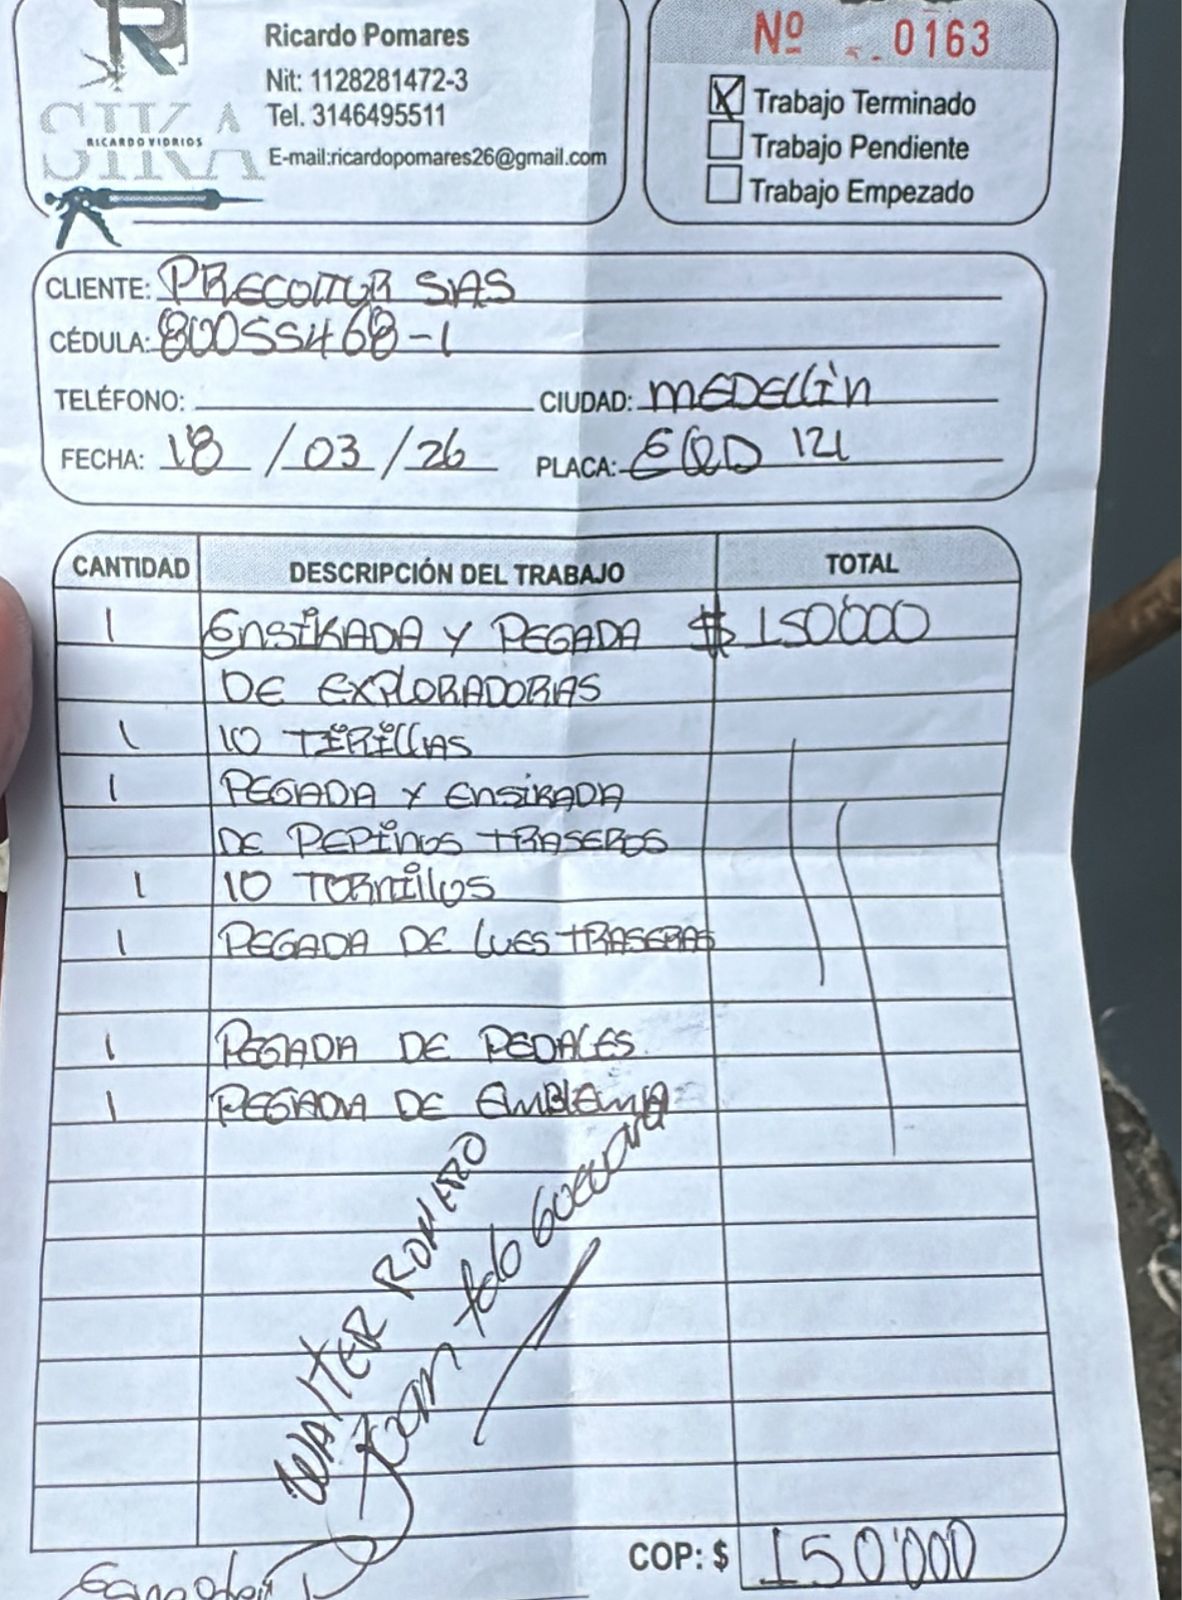 Ricardo Pomares
Nit: 1128281472-3
Tel. 3146495511
E-mail:ricardopomares26@gmail.com
SIKA
RICARDO VIDRIOS
Nº 0163
X Trabajo Terminado
Trabajo Pendiente
Trabajo Empezado
CLIENTE: PRECOLTUR SAS
CÉDULA: 80055468-1
TELÉFONO: CIUDAD: MEDELLIN
FECHA: 18/03/26 PLACA: EQD 121
CANTIDAD DESCRIPCIÓN DEL TRABAJO TOTAL
1 ENSIKADA Y PEGADA $ 150'000
DE EXPLORADORAS
1 10 TIRILLAS
1 PEGADA Y ENSIKADA
DE PEPINOS TRASEROS
1 10 TORNILLOS
1 PEGADA DE LUES TRASERAS
1 PEGADA DE PEDALES
1 PEGADA DE EMBLEMA
WALTER ROMERO
COP: $ 150'000